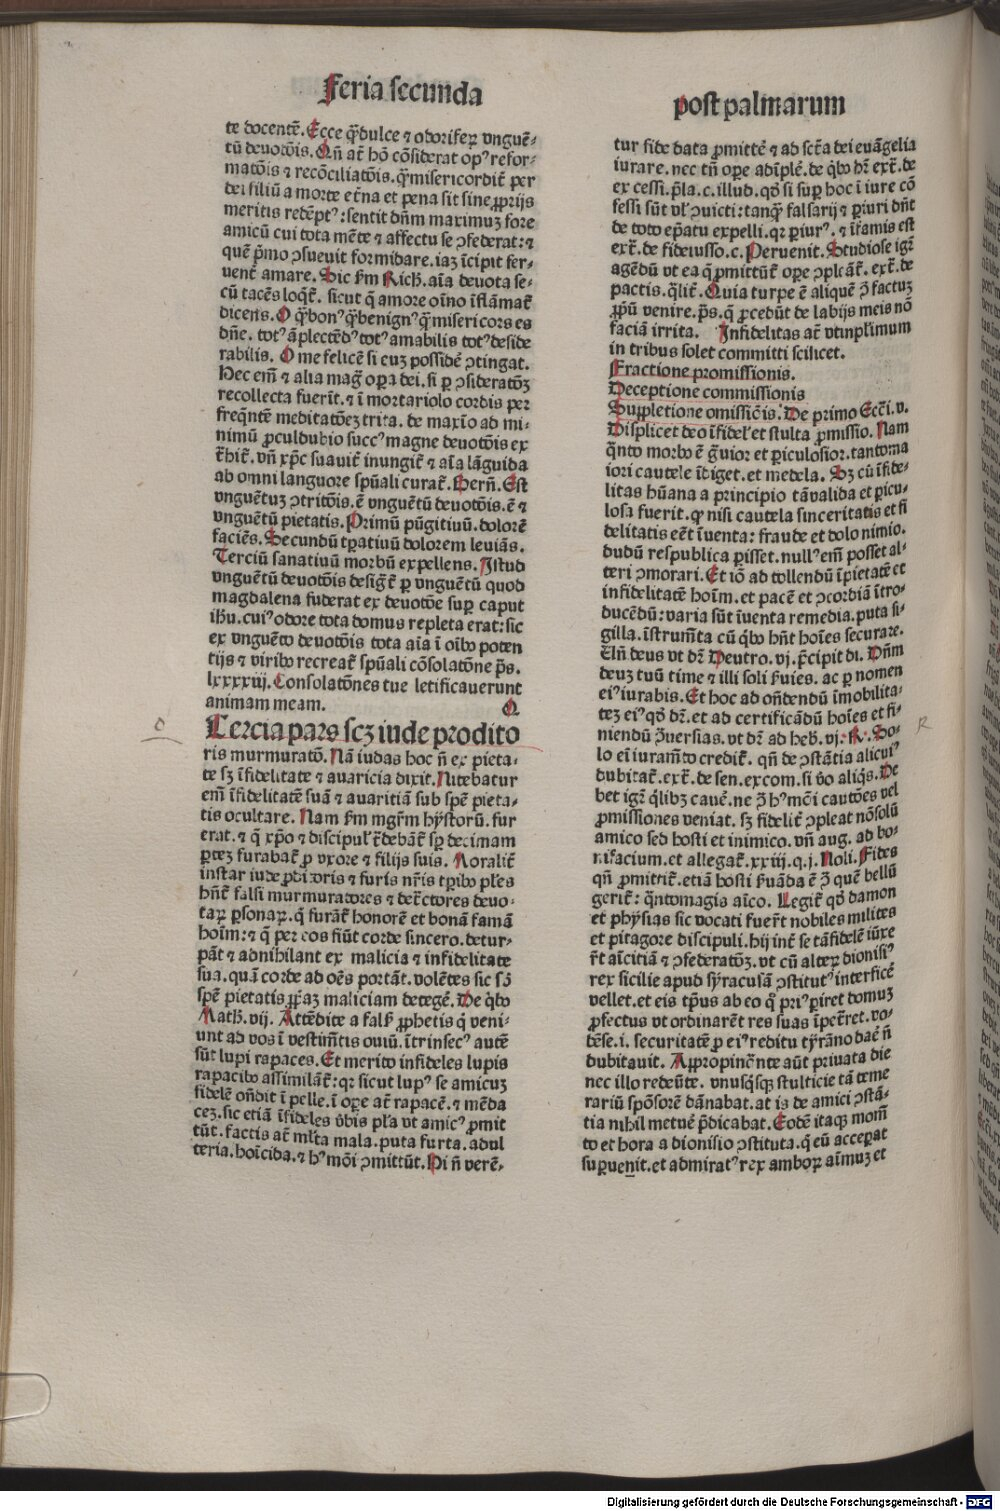 Feria secunda
te docentē. Ecce q̄ dulce ⁊ odoriferꝫ vnguē-
tū deuotōis. Qn̄ at̄ hō cōsiderat opꝰ refor-
matōis ⁊ recōciliatōis. q̄ misericordit̄ per
dei filiū a morte et̄na et pena sit sine ꝓprijs
meritis redēptꝰ: sentit dn̄m maximuꝫ fore
amicū cui tota mēte ⁊ affectu se ɔfederat: ⁊
quē p̄mo ɔsueuit formidare. iaꝫ īcipit fer-
uent̄ amare. Hic fr̄m Rich. aīa deuota se-
cū tacēs loqt̄. sicut q̄ amore oīno īflāmat̄
dicens. O q̄ bonꝰ q̄ benignꝰ q̄ misericors es
dn̄e. totꝰ āplectēdꝰ totꝰ amabilis totꝰ deside
rabilis. O me felicē si euꝫ possidē ɔtingat.
Hec em̄ ⁊ alia maḡ oꝑa dei. si ꝑ ɔsideratōꝫ
recollecta fuerīt. ⁊ ī mortariolo cordis per
freq̄ntē meditatōeꝫ trita. de maxīo ad mi-
nimū ꝓculdubio succꝰ magne deuotōis ex
t̄hit̄. vn̄ xp̄c suauit̄ inungit̄ ⁊ aīa lāguida
ab omni languore sp̄uali curat̄. Bern̄. Est
vnguētuꝫ ɔtritōis. ē vnguētū deuotōis. ē ⁊
vnguētū pietatis. Primū pūgitiuū. dolorē
faciēs. Secundū tꝑatiuū dolorem leuiās.
Terciū sanatiuū morbū expellens. Istud
vnguētū deuotōis desiḡt̄ ꝑ vnguētū quod
magdalena fuderat ex deuotōe suꝑ caput
ihū. cuiꝰ odore tota domus repleta erat: sic
ex vnguēto deuotōis tota aīa ī oībꝰ poten
tijs ⁊ viribꝰ recreat̄ sp̄uali cōsolatōne p̄s.
lxxxxiij. Consolatōnes tue letificauerunt
animam meam. Q
Tercia pars scꝫ iude prodito
ris murmuratō. Nā iudas hoc n̄ ex pieta-
te sꝫ īfidelitate ⁊ auaricia dixit. Nitebatur
em̄ īfidelitatē suā ⁊ auaritiā sub spē pieta-
tis ocultare. Nam fm̄ mgr̄m hystorū. fur
erat. ⁊ q̄ xp̄o ⁊ discipul̄ t̄debāt̄ sꝑ decimam
ꝑteꝫ furabat̄ ꝓ vxore ⁊ filijs suis. Moralit̄
instar iude ꝓditoris ⁊ furis nr̄is tꝑibꝰ pl̄es
hn̄t̄ falsi murmuratores ⁊ det̄ctores deuo-
taꝝ ꝑsonaꝝ. q̄ furāt̄ honorē et bonā famā
hoīm: ⁊ q̄ per eos fiūt corde sincero. detur-
pāt ⁊ adnihilant ex malicia ⁊ infidelitate
sua. quā corde ad oēs portāt. volētes sic sō
spē pietatis ꝓpaꝫ maliciam detegē. De q̄bꝰ
Math. vij. Attēdite a fals̄ ꝓphetis q̄ veni-
unt ad vos ī vestimētis ouiū. īt̄insecꝰ autē
sūt lupi rapaces. Et merito infideles lupis
rapacibꝰ assimilāt̄: qꝛ sicut lupꝰ se amicuꝫ
fidelē on̄dit ī pelle. ī oꝑe at̄ rapacē. ⁊ mēda
ceꝫ. sic etiā īfideles v̄bis pl̄a vt amicꝰ ꝓmit
tūt. factis at̄ ml̄ta mala. puta furta. adul
teria. hoīcida. ⁊ hꝰmōi ɔmittūt. Hi n̄ verē-
post palmarum
tur fide data ꝓmittē ⁊ ad sct̄a dei euāgelia
iurare. nec tn̄ oꝑe adīplē. de q̄bꝰ dr̄ ext̄. de
ex cessi. p̄la. c. illud. qd̄ si suꝑ hoc ī iure cō
fessi sūt vl̄ ɔuicti: tanq̄ falsarij ⁊ ꝑiuri dn̄t
de toto ep̄atu expelli. qꝛ ꝑiurꝰ. ⁊ īfamis est
ext̄. de fideiusso. c. Peruenit. Studiose igr̄
agēdū vt ea q̄ ꝓmittūt̄ oꝑe ɔpleāt̄. ext̄. de
pactis. q̄lit̄. Quia turpe ē aliquē ɔ̄ factuꝫ
ꝓpū venire. p̄s. q̄ ꝓcedūt de labijs meis nō
faciā irrita. Infidelitas at̄ vtinplimum
in tribus solet committi scilicet.
Fractione promissionis.
Deceptione commissionis
Suppletione omissiōis. De primo Ecci. v.
Displicet deo īfidel̄ et stulta ꝓmissio. Nam
q̄nto morbꝰ ē ḡuior et ꝑiculosior. tanto ma
iori cautele īdiget. et medela. Sꝫ cū īfide-
litas hūana a principio tā valida et ꝑicu-
losa fuerit. qꝰ nisi cautela sinceritatis et fi
delitatis eēt īuenta: fraude et dolo nimio.
dudū respublica ꝑisset. nullꝰ em̄ posset al-
teri ɔmorari. Et iō ad tollendū īpietatē et
infidelitatē hoīm. et pacē et ɔcordiā ītro-
ducēdū: varia sūt īuenta remedia. puta si-
gilla. īstrumēta cū q̄bꝰ hn̄t hoīes securare.
Eln̄ deus vt dr̄ Deutro. vj. p̄cipit di. Dn̄m
deuꝫ tuū time ⁊ illi soli s̄uies. ac ꝑ nomen
eiꝰ iurabis. Et hoc ad on̄dendū īmobilita-
teꝫ eiꝰ qd̄ dr̄. et ad certificādū hoīes et fi-
niendū ɔ̄uersias. vt dr̄ ad heb. vj. R. So-
lo ei iuramēto credit̄. qn̄ de ɔstātia alicuiꝰ
dubitat̄. ext̄. de sen. excom. si v̄o aliq̄s. De
bet igr̄ q̄libꝫ cauē. ne ɔ̄ hꝰmōi cautōes vel
ꝓmissiones veniat. sꝫ fidelit̄ ɔpleat nō solū
amico sed hosti et inimico. vn̄ aug. ad bo-
nifacium. et allegat̄. xxiij. q. j. Noli. Fides
qn̄ ꝓmittit̄. etiā hosti s̄uāda ē ɔ̄ quē bellū
gerit̄: q̄ntomagis aīco. Legit̄ qd̄ damon
et physias sic vocati fuer̄t nobiles milites
et pitagore discipuli. hij int̄ se tā fidelē iūxe
r̄t aīcitiā ⁊ ɔfederatōꝫ. vt cū alteꝝ dionisiꝰ
rex sicilie apud syracusā ɔstitutꝰ interficē
vellet. et eis tp̄us ab eo qꝰ priꝰ ꝑiret domuꝫ
ꝓfectus vt ordinarēt res suas īpet̄ret. vo-
dēse. i. securitatē ꝓ eiꝰ reditu tyrāno daē n̄
dubitauit. Appropinq̄nte aūt priuata die
nec illo redeūte. vnusq̄sqꝫ stulticie tā teme
rariū spōsorē dānabat. at is de amici ɔstā-
tia nihil metuē p̄dicabat. Eodē itaqꝫ momē
to et hora a dionisio ɔstituta. q̄ eū acceꝑat
suꝑuenit. et admiratꝰ rex amboꝝ aīmuꝫ et
O
R
Digitalisierung gefördert durch die Deutsche Forschungsgemeinschaft - DFG